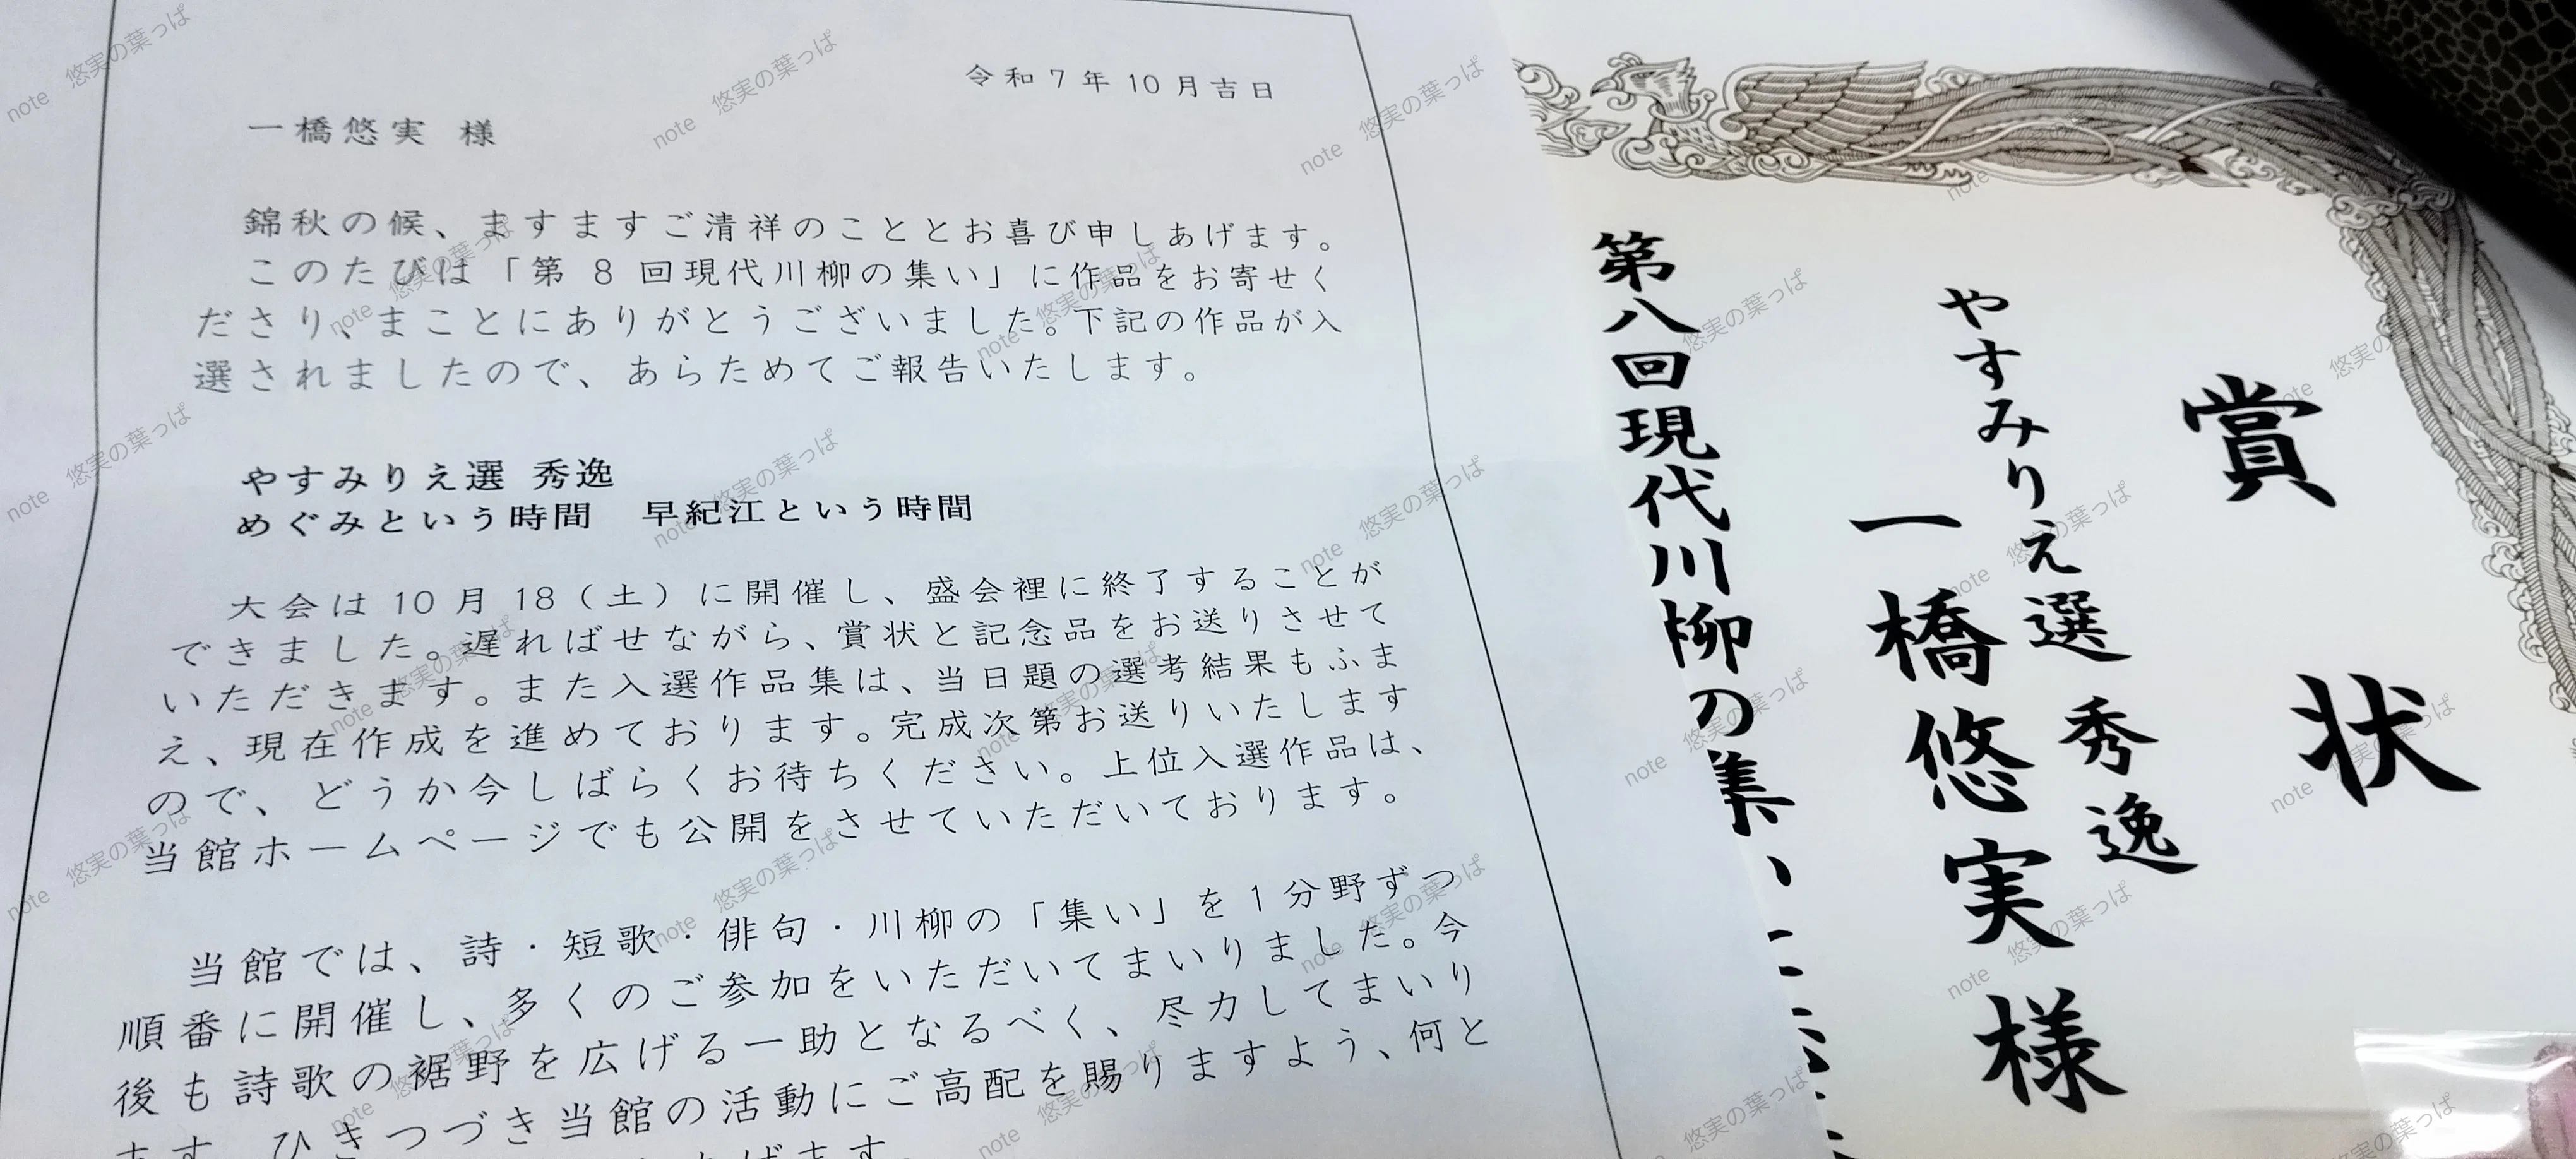 令和7年10月吉日
一橋悠実 様
錦秋の候、ますますご清祥のこととお喜び申しあげます。
このたびは「第8回現代川柳の集い」に作品をお寄せく
ださり、まことにありがとうございました。下記の作品が入
選されましたので、あらためてご報告いたします。
やすみりえ選 秀逸
めぐみという時間 早紀江という時間
大会は10月18(土)に開催し、盛会裡に終了することが
できました。遅ればせながら、賞状と記念品をお送りさせて
いただきます。また入選作品集は、当日題の選考結果もふま
え、現在作成を進めております。完成次第お送りいたします
ので、どうか今しばらくお待ちください。上位入選作品は、
当館ホームページでも公開をさせていただいております。
当館では、詩・短歌・俳句・川柳の「集い」を1分野ずつ
順番に開催し、多くのご参加をいただいてまいりました。今
後も詩歌の裾野を広げる一助となるべく、尽力してまいり
ます。ひきつづき当館の活動にご高配を賜りますよう、何と
賞状
やすみりえ選 秀逸
一橋悠実様
第八回現代川柳の集い
note 悠実の葉っぱ